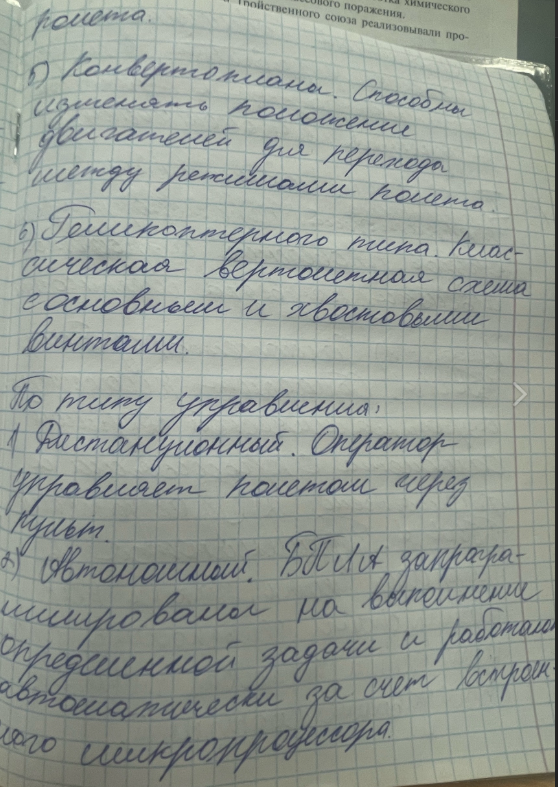 тка химического
сового поражения.
Тройственного союза реализовывали про-
полета.
5) Конвертопланы. Способны
изменять положение
двигателей для перехода
между режимами полета.
6) Геликоптерного типа. Клас-
сическая вертолетная схема
с основным и хвостовыми
винтами.
По типу управления:
1 Дистанционный. Оператор
управляет полетом через
пульт.
2) Автономный. БПЛА запрогра-
ммированы на выполнение
определенной задачи и работают
автоматически за счет встроен
ного микропроцессора.